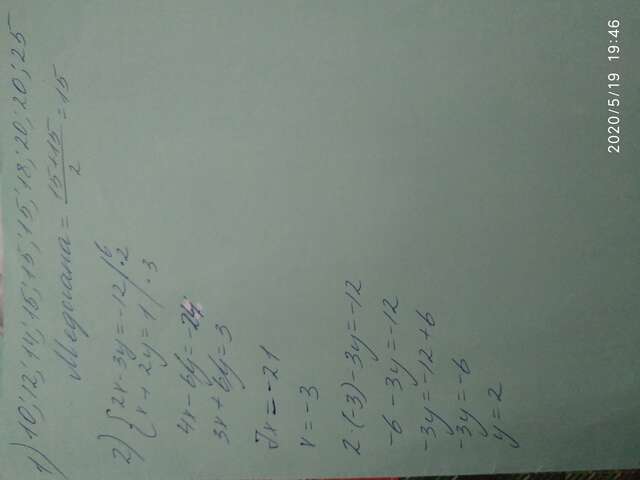 1) 10; 12; 14; 15; 15; 15; 18; 20; 20; 25
Медиана = 15+15/2 = 15
2) { 2x-3y=-12 | ·2
x + 2y = 1 | ·3
4x - 6y = -24
3x + 6y = 3
7x = -21
x = -3
2·(-3)-3y=-12
-6-3y=-12
-3y=-12+6
-3y=-6
y=2
2020/5/19 19:46